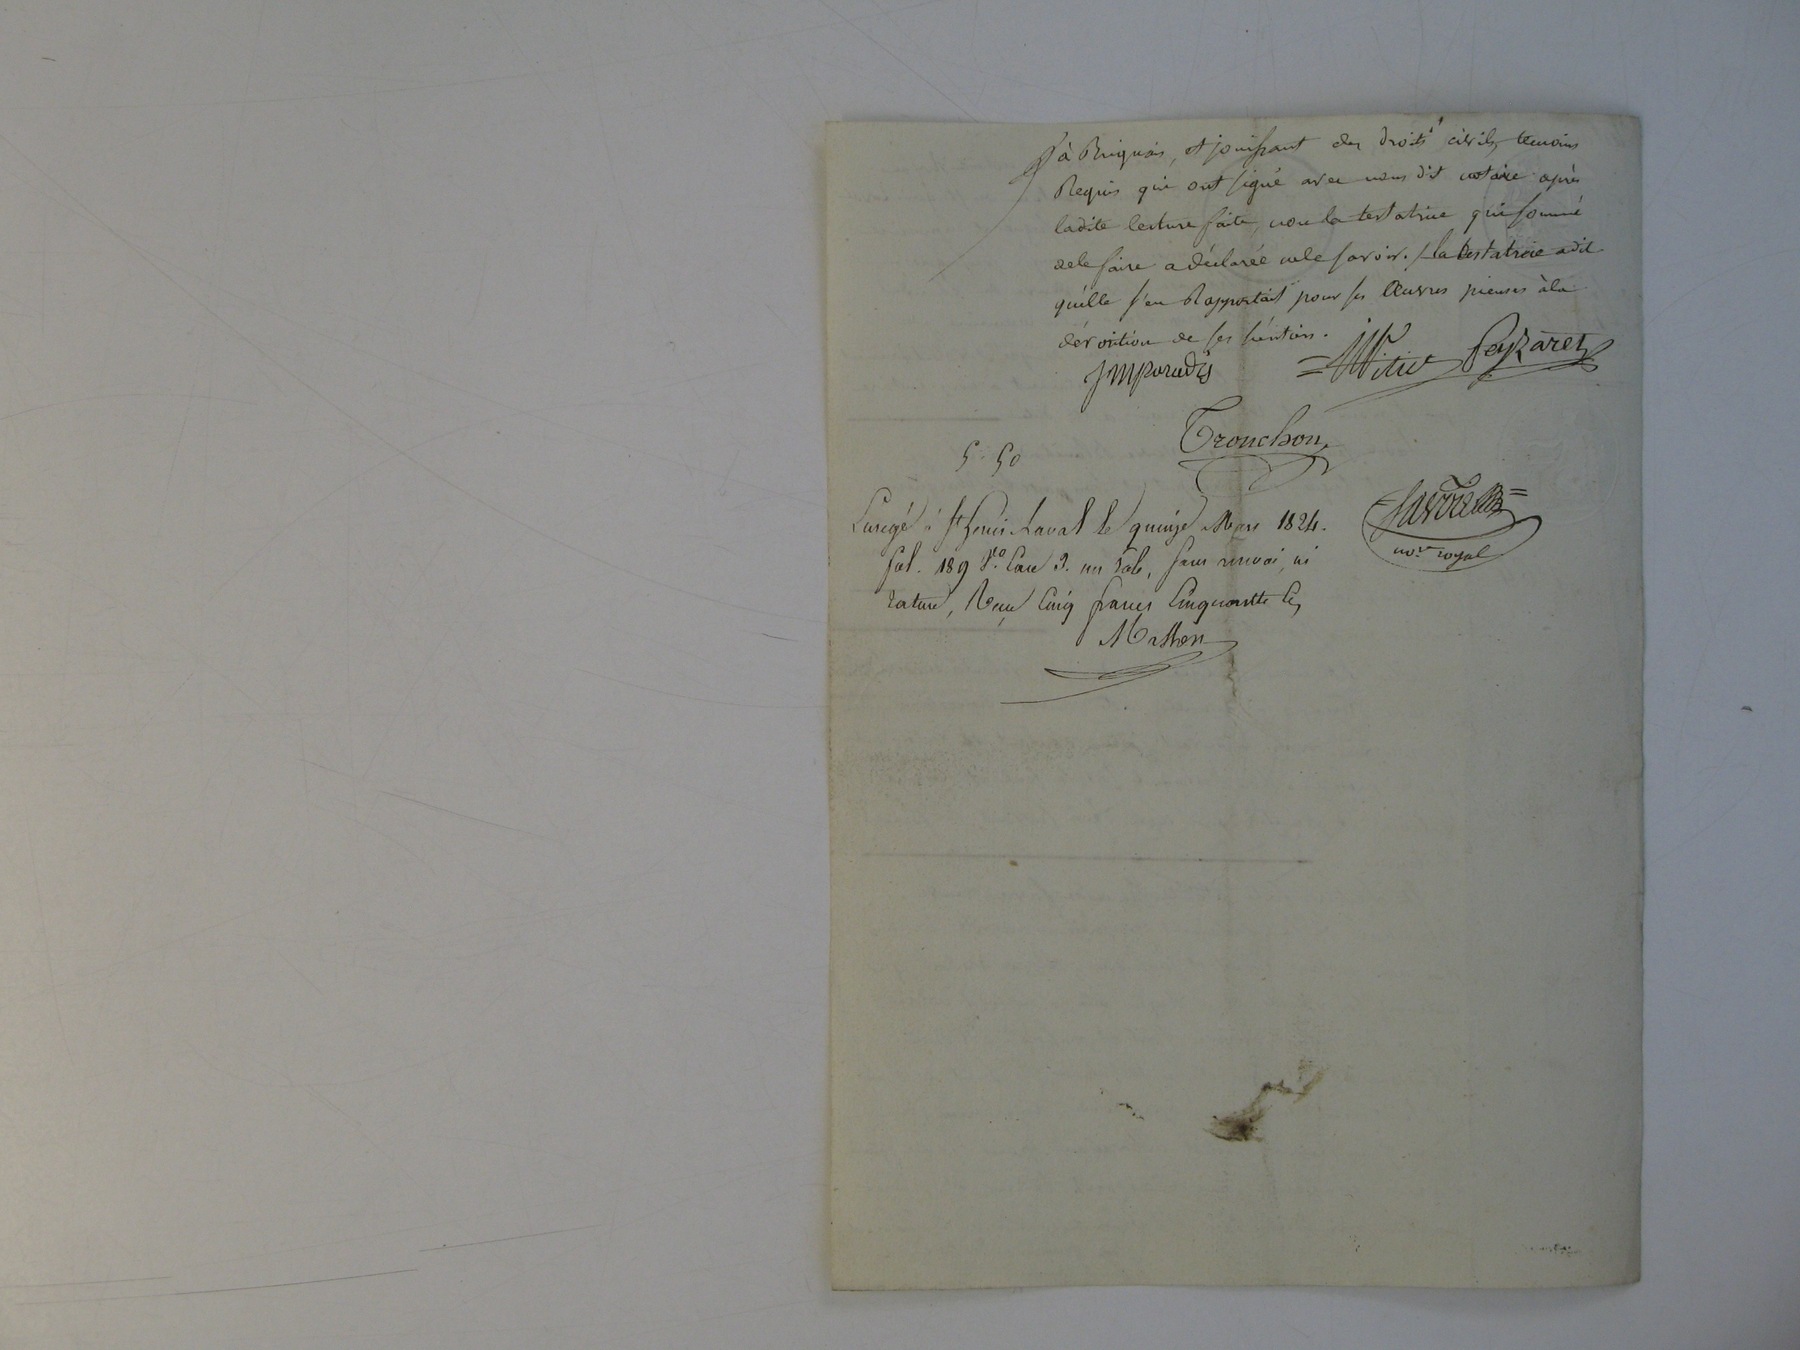 à Brignais, et jouissant des droits civils, temoins
Requis qui ont signé avec nous dit notaire après
ladite lecture faite, non la testatrice qui sommé
de le faire a déclarée ne le savoir. / la testatrice a dit
qu'elle s'en Rapportait pour ses Œuvres pieuses à la
dévotion de ses héritiers.
JMParadis Peyzaret
Tronchon
5. 50
Enregé à St Genis Laval le quinze Mars 1824.
fol. 189 Vo. Case 3. un rôle, sans renvoi, ni
rature, Reçu Cinq francs Cinquante Ces
not.re royal